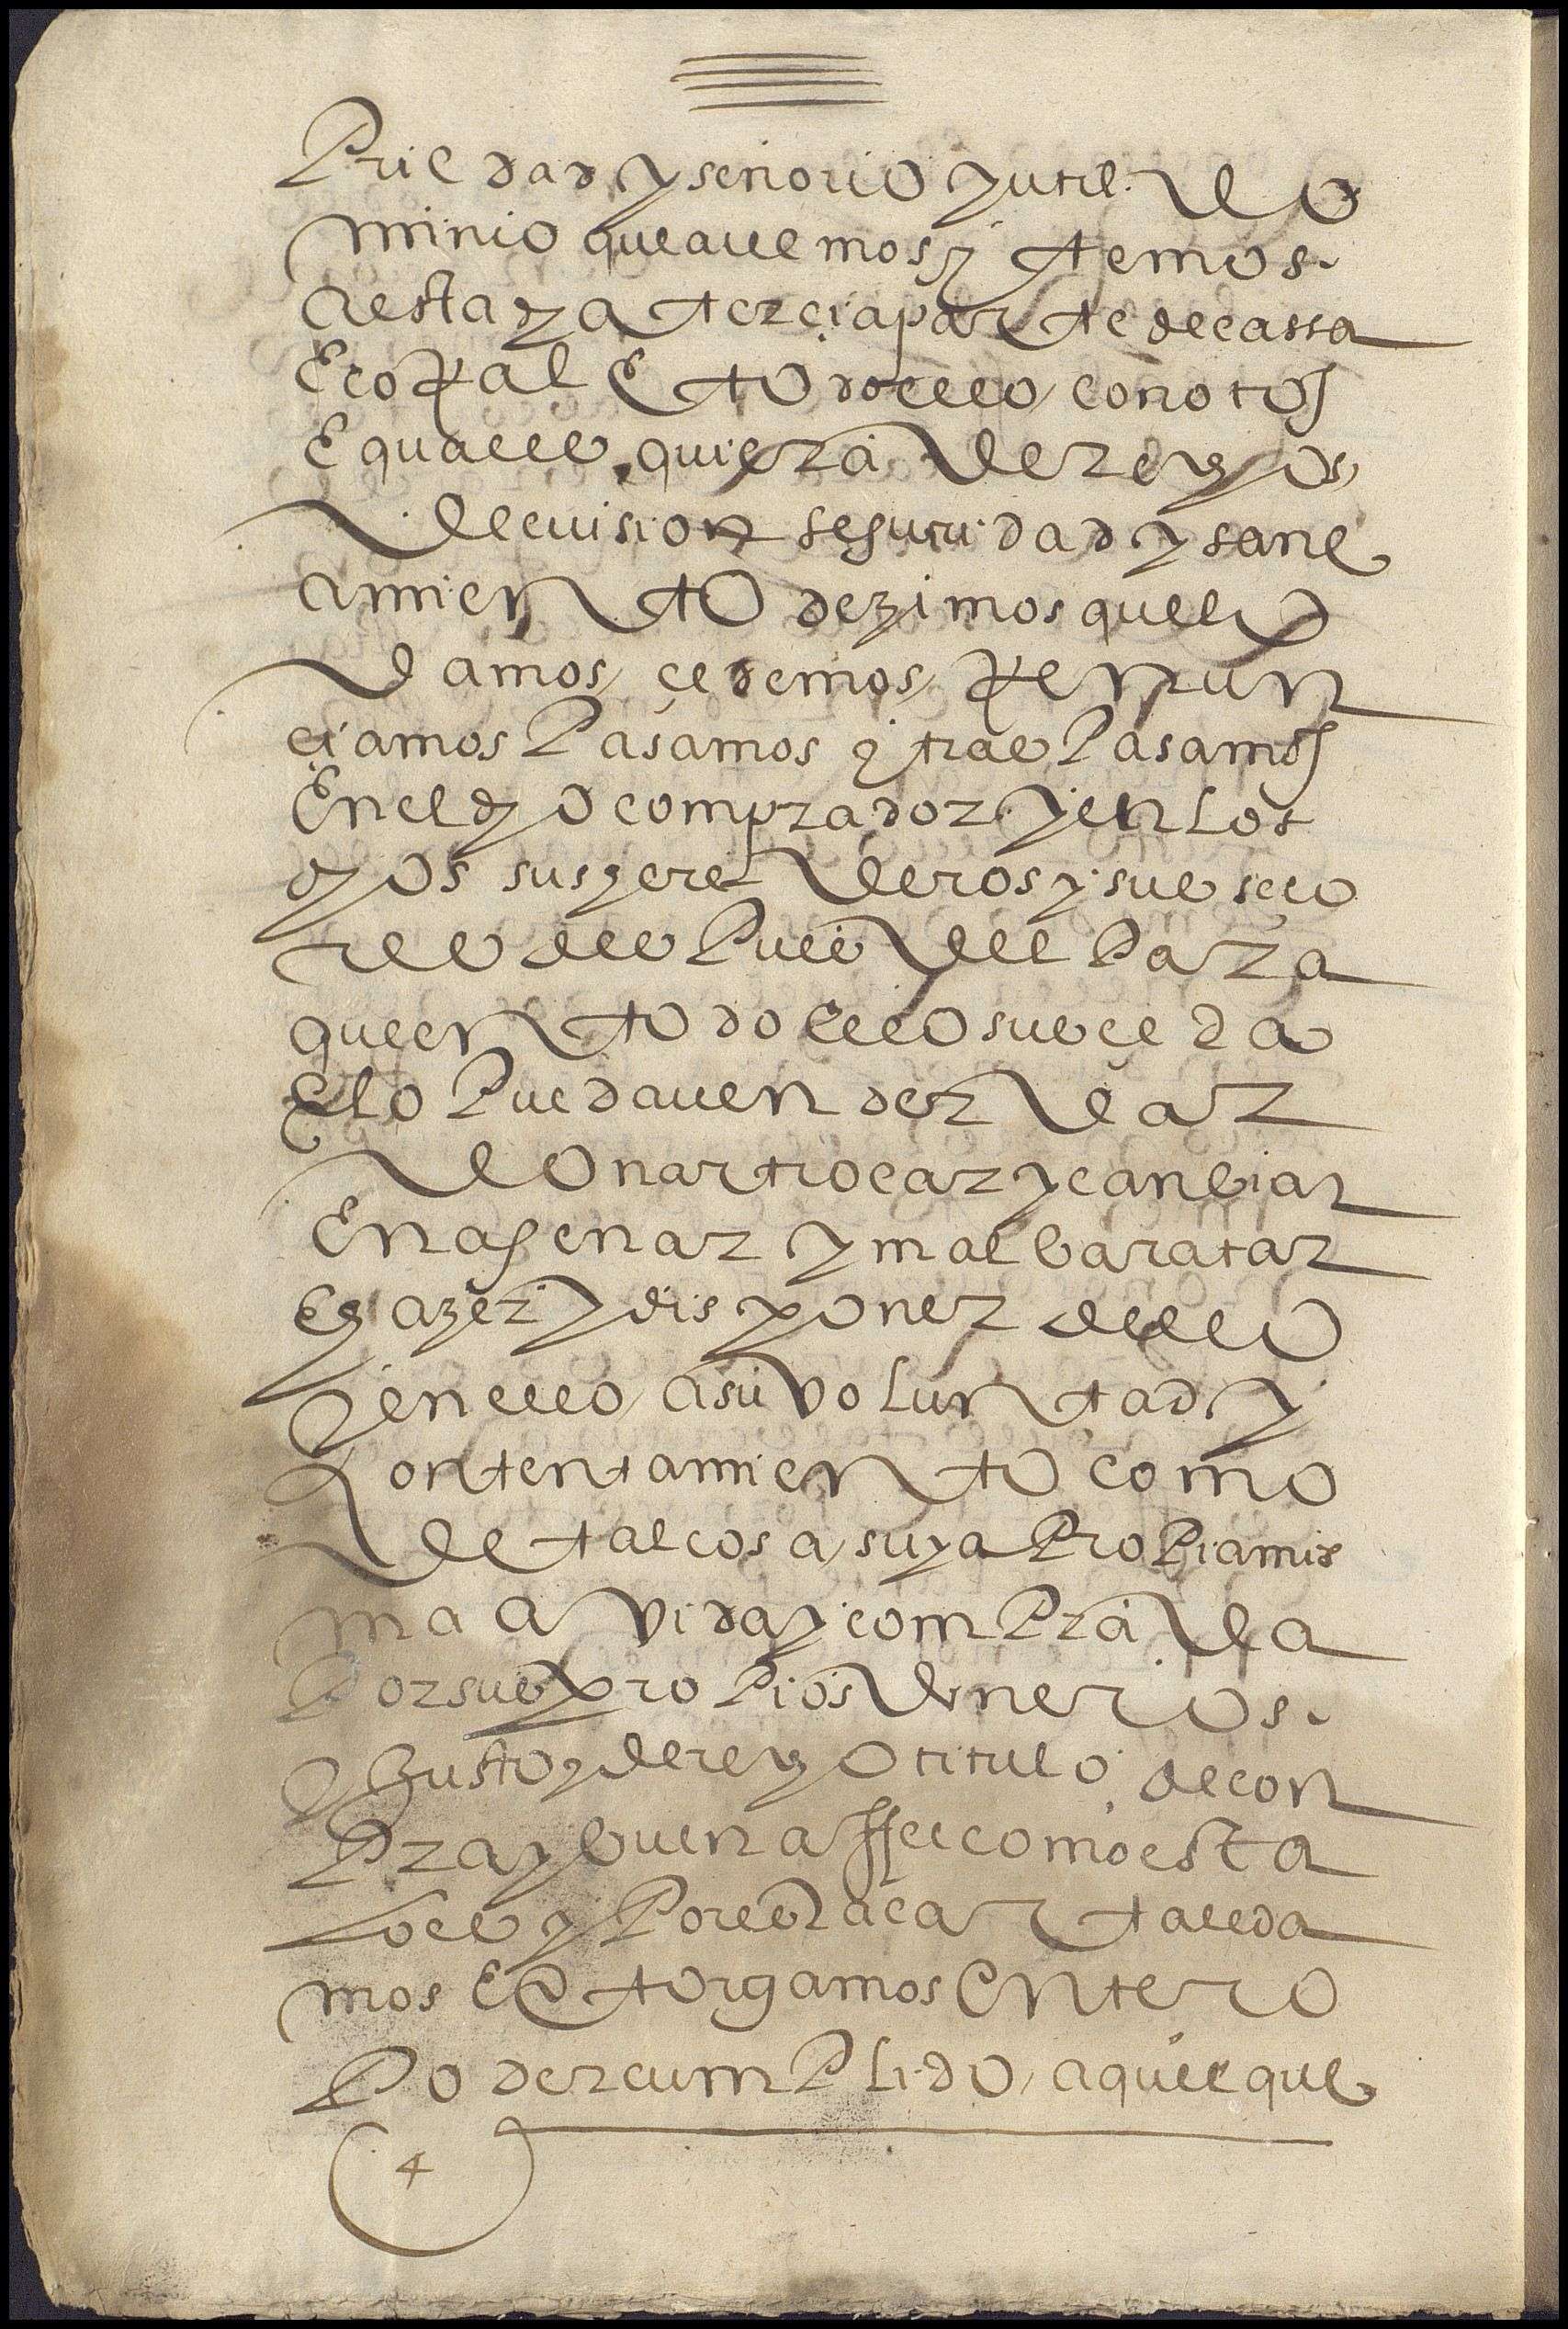 Priedad y señorio y util do
minio que auemos y tenemos
a esta dha terçia parte de cassa
E corral E todo ello con otros
E quales quiera derechos
de euision seguridad y sane
amiento dezimos quelo
damos çedemos Renun
çiamos Pasamos y tras Pasamos
En el dho comprador y en los
dhos sus herederos y subseso
res despues del Para
que en todo ello subçeda
E lo Pueda uender dar
donar trocar y canbiar
Enagenar y mal baratar
E hazer y disponer dello
y en ello a su voluntad y
Contentamiento como
de tal cosa suya Propia mis
ma avida y comPrada
Por sus proPios dineros
y Justo y derecho titulo de con
Pra y buena ffee como esta
lo es y Por esta carta le da
mos E otorgamos Entero
Poder cumPlido a quel que
4